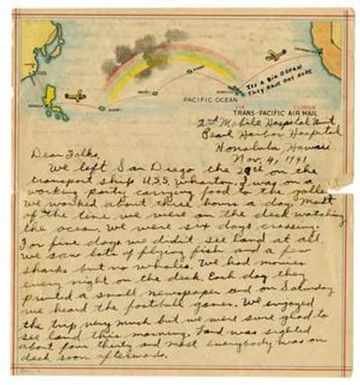 It's a Big Ocean
They Have out here
PACIFIC OCEAN
TRANS-PACIFIC AIR MAIL
2nd Mobile Hospital Unit
Pearl Harbor Hospital
Honolulu, Hawaii
Nov. 4, 1941
Dear Folks,
We left San Diego the on the
transport ship U.S.S. Wharton. I was on a
working party carrying food to the galley.
We worked about three hours a day. Most
of the time we were on the deck watching
the ocean. We were six days crossing.
For five days we didn't see land at all.
We saw lots of flying fish and a few
sharks but no whales. We had movies
every night on the deck. Each day they
printed a small newspaper and on Saturday
we heard the football games. We enjoyed
the trip very much but we were sure glad to
see land this morning. Land was sighted
about four thirty and most everybody was on
deck soon afterwards.